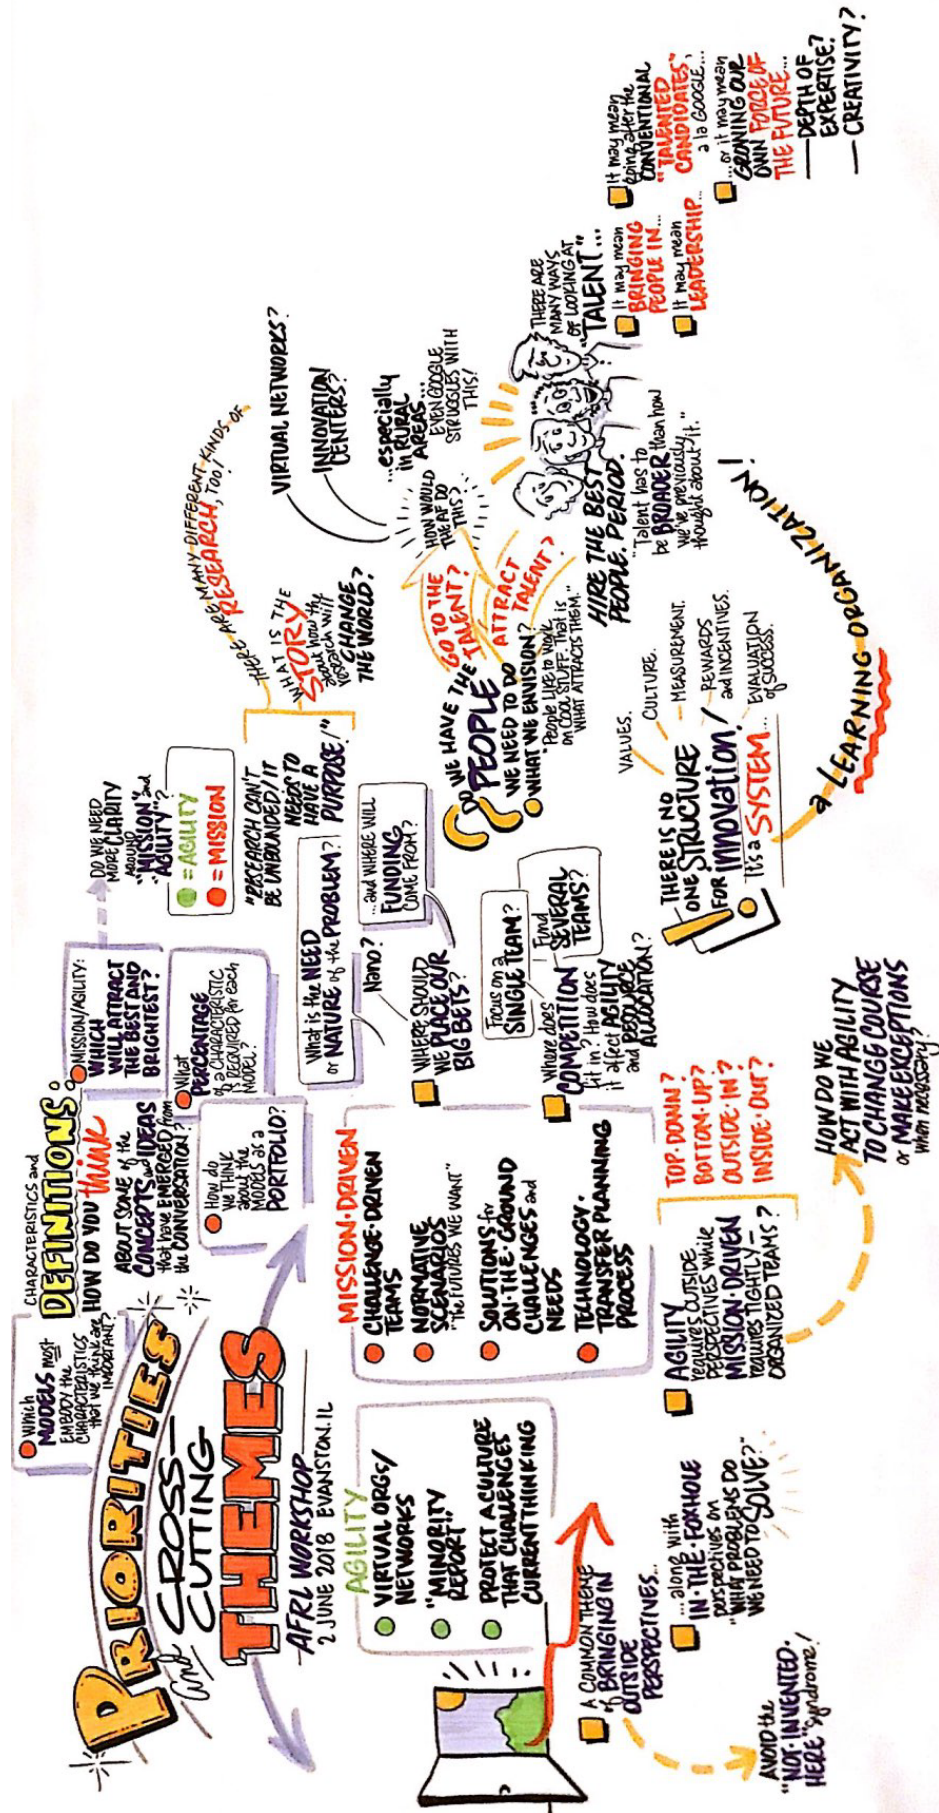 PRIORITIES
and CROSS-
CUTTING
THEMES
AFRL WORKSHOP
2 JUNE 2018 EVANSTON. IL
Which
MODELS most
EMBODY the
CHARACTERISTICS
that we think are
IMPORTANT?
CHARACTERISTICS and
DEFINITIONS:
HOW DO YOU think
ABOUT SOME of the
CONCEPTS and IDEAS
that have EMERGED from
the CONVERSATION?
How do
we THINK
about the
MODELS as a
PORTFOLIO?
MISSION/AGILITY:
WHICH
WILL ATTRACT
THE BEST AND
BRIGHTEST?
What
PERCENTAGE
of a CHARACTERISTIC
is REQUIRED for each
MODEL?
DO WE NEED
MORE CLARITY
AROUND
"MISSION" and
"AGILITY"?
= AGILITY
= MISSION
AGILITY
VIRTUAL ORGS/
NETWORKS
"MINORITY
REPORT"
PROTECT A CULTURE
THAT CHALLENGES
CURRENT THINKING
MISSION·DRIVEN
CHALLENGE·DRIVEN
TEAMS
NORMATIVE
SCENARIOS
"THE FUTURES WE WANT"
SOLUTIONS for
ON·THE·GROUND
CHALLENGES and
NEEDS
TECHNOLOGY·
TRANSFER PLANNING
PROCESS
"RESEARCH CAN'T
BE UNBOUNDED/IT
NEEDS TO
HAVE A
PURPOSE!"
THERE ARE MANY DIFFERENT KINDS OF
RESEARCH, TOO!
WHAT IS THE
STORY
about how the
research will
CHANGE
THE WORLD?
What is the NEED
or NATURE of the PROBLEM?
Nano?
...and WHERE WILL
FUNDING
COME FROM?
WHERE SHOULD
WE PLACE OUR
BIG BETS?
Focus on a
SINGLE TEAM?
Fund
SEVERAL
TEAMS?
Where does
COMPETITION
fit in? How does
it affect AGILITY
and RESOURCE
ALLOCATION?
DO WE HAVE THE
PEOPLE
WE NEED TO DO
WHAT WE ENVISION?
"PEOPLE LIKE TO WORK
ON COOL STUFF. THAT IS
WHAT ATTRACTS THEM."
GO TO THE
TALENT?
ATTRACT
TALENT?
HOW WOULD
THE AF DO
THIS?
VIRTUAL NETWORKS?
INNOVATION
CENTERS?
...especially
in RURAL
AREAS...
EVEN GOOGLE
STRUGGLES WITH
THIS!
HIRE THE BEST
PEOPLE. PERIOD.
"Talent has to
be BROADER than how
we've previously
thought about it."
THERE ARE
MANY WAYS
OF LOOKING AT
"TALENT"...
It may mean
BRINGING
PEOPLE IN...
It may mean
LEADERSHIP...
It may mean
going after the
CONVENTIONAL
"TALENTED
CANDIDATES",
a la GOOGLE...
...or it may mean
GROWING OUR
OWN FORCE OF
THE FUTURE...
— DEPTH OF
EXPERTISE?
— CREATIVITY?
THERE IS NO
ONE STRUCTURE
FOR INNOVATION!
It's a SYSTEM...
VALUES.
CULTURE.
MEASUREMENT.
REWARDS
and INCENTIVES.
EVALUATION
of SUCCESS.
a LEARNING ORGANIZATION!
A COMMON THEME
of BRINGING IN
OUTSIDE
PERSPECTIVES...
AVOID the
"NOT·INVENTED·
HERE" Syndrome!
...along with
IN·THE·FOXHOLE
perspectives on
"WHAT PROBLEMS DO
WE NEED TO SOLVE?"
AGILITY
requires OUTSIDE
PERSPECTIVES while
MISSION·DRIVEN
requires TIGHTLY-
ORGANIZED TEAMS?
TOP·DOWN?
BOTTOM·UP?
OUTSIDE·IN?
INSIDE·OUT?
HOW DO WE
ACT WITH AGILITY
TO CHANGE COURSE
or MAKE EXCEPTIONS
when necessary?